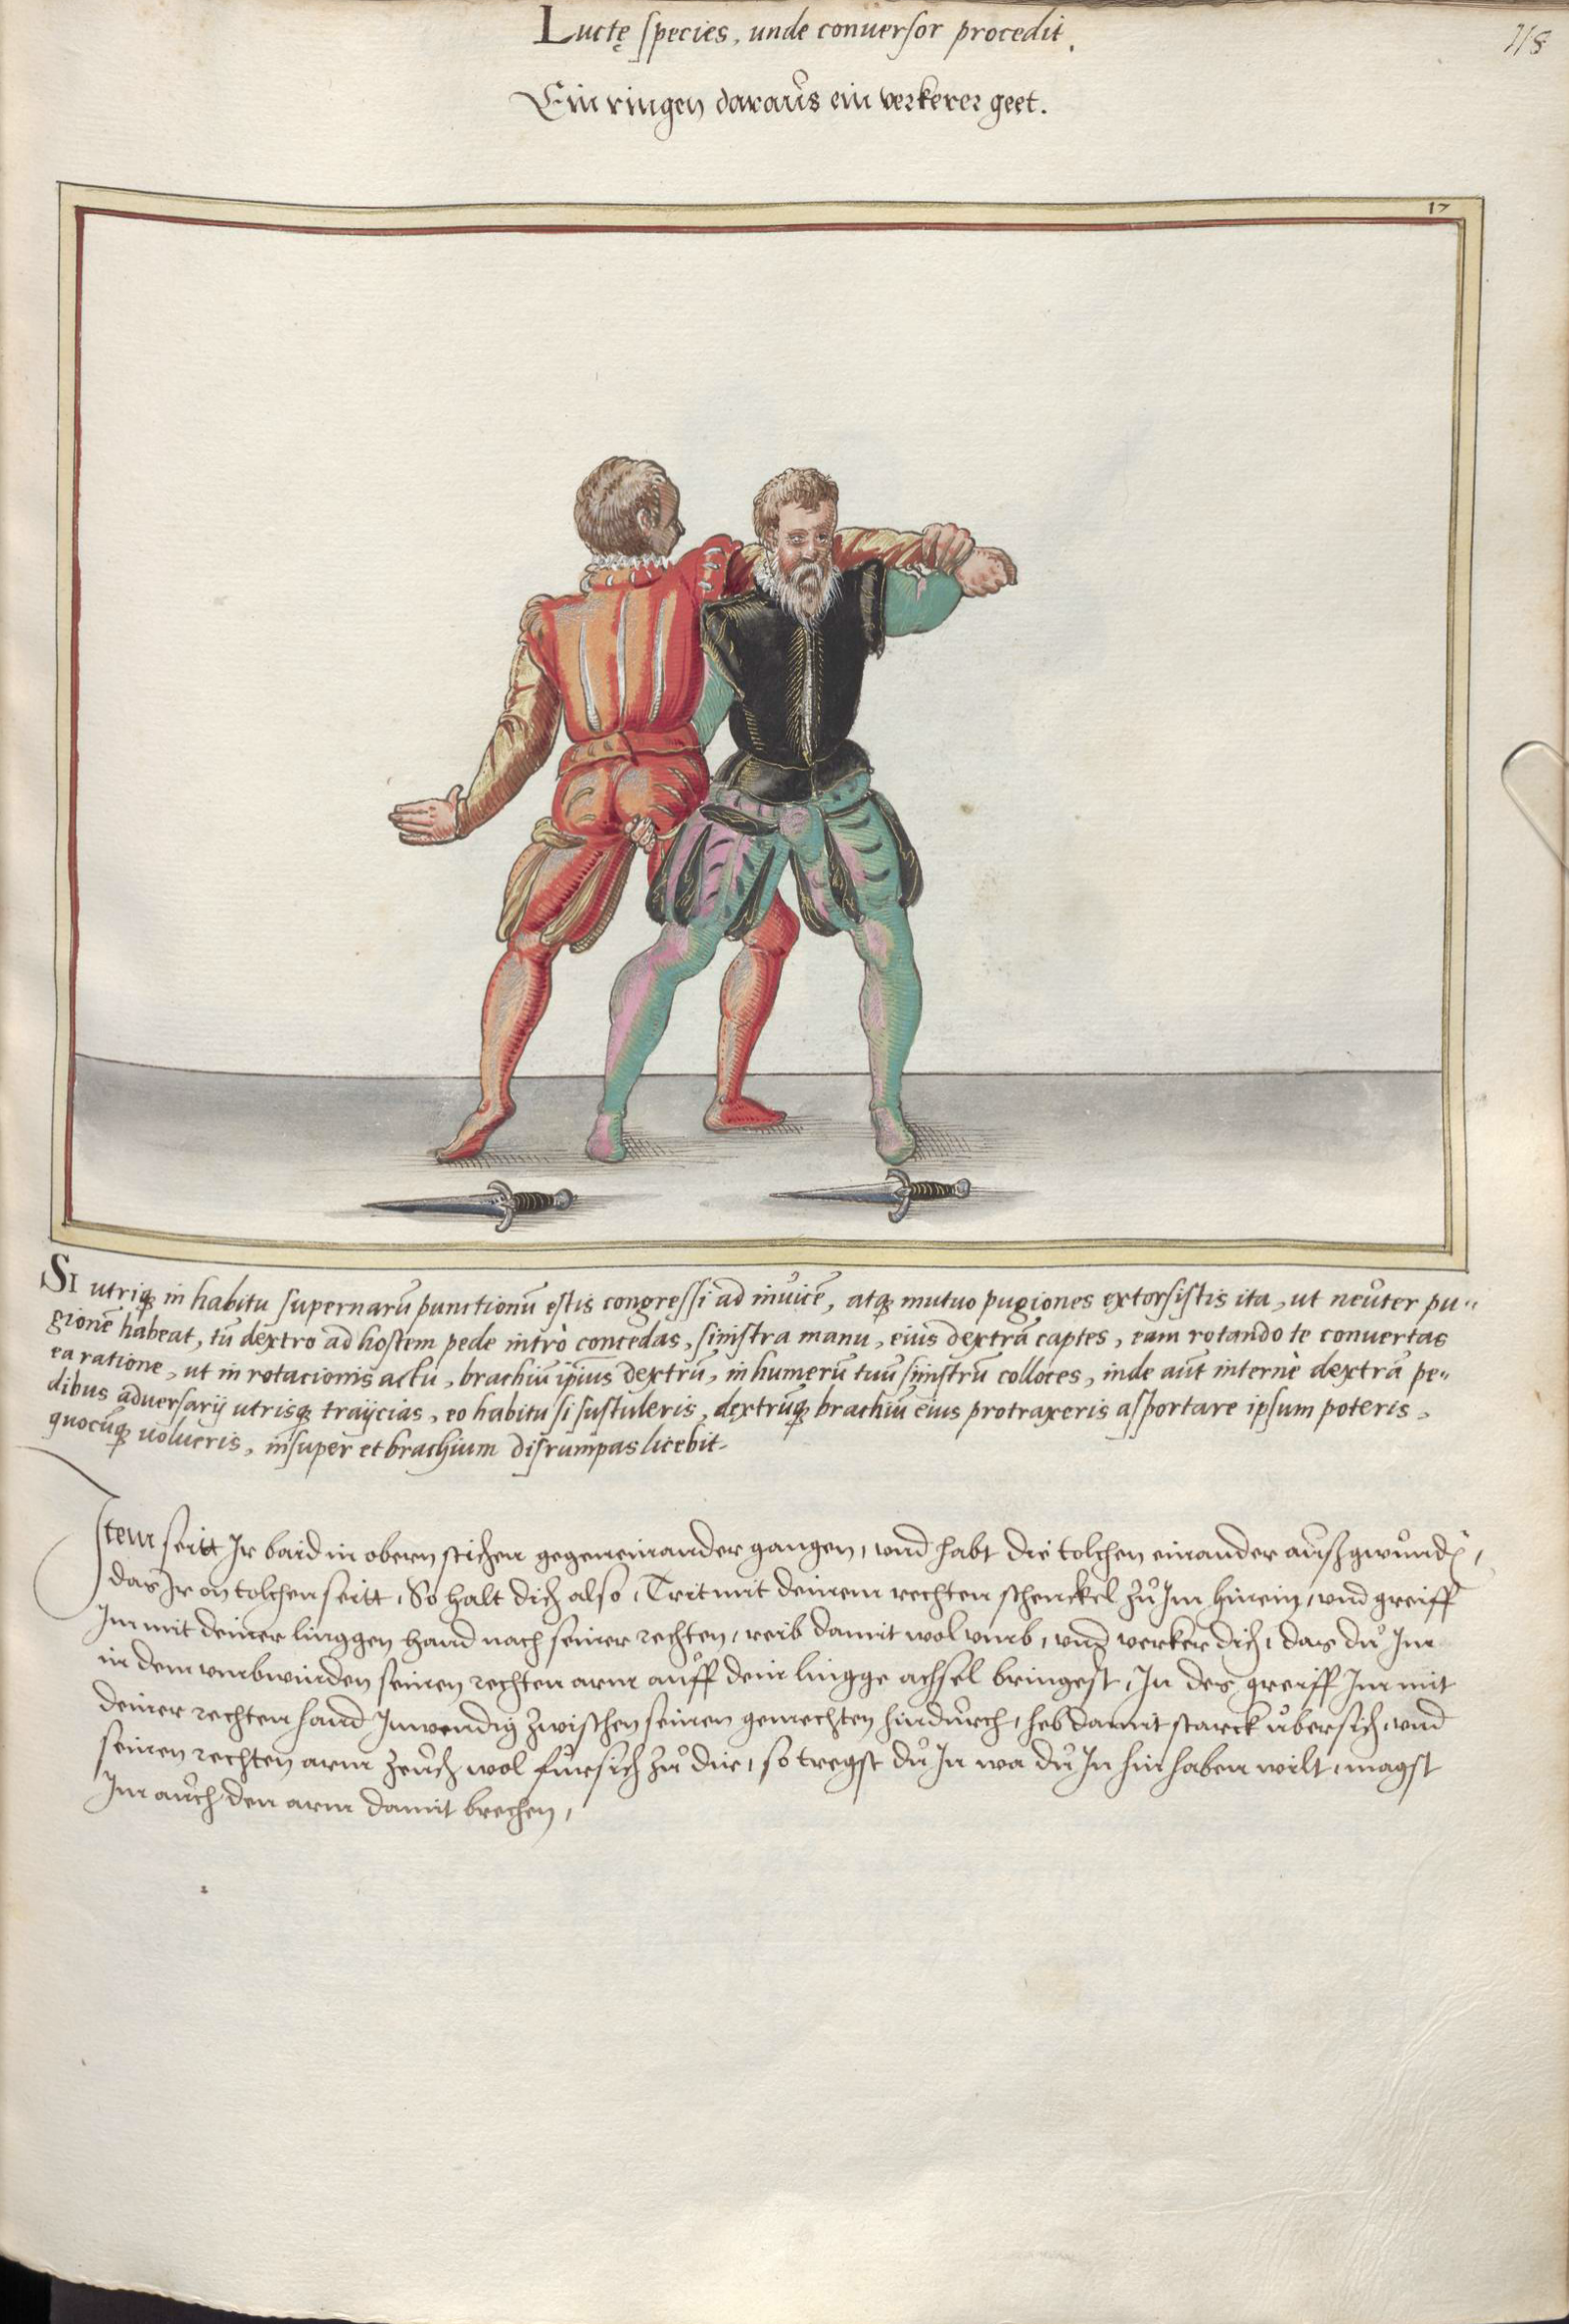 Luctę species, unde conuersor procedit.
118
Ein ringen daraůs ein verkerer geet.
17
SI utriq̃ in habitu supernarũ punctionũ estis congressi ad inuicẽ, atq̃ mutuo pugiones extorsistis ita, ut neuter pu-
gionẽ habeat, tũ dextro ad hostem pede introˋ concedas, sinistra manu, eius dextrã captes, eam rotando te conuertas
ea ratione, ut in rotacionis actu, brachiũ ipius dextrũ, in humerũ tuũ sinistrũ colloces, inde aũt internè dextrã pe-
dibus adversarij utrisq̃ traijcias, eo habitu si sustuleris, dextrũq̃ brachiũ eius protraxeris asportare ipsum poteris,
quocũq̃ uolueris, insuper et brachium disrumpas licebit.
Item seitt Ir baid in obern stichen gegeneinander gangen, und habt die tolchen einander aůßgwůndẽ,
das Ir on tolchen seitt, So halt dich also, Trit mit deinem rechten schenckel zů Im hinein, und greiff
Im mit deiner linggen hand nach seiner rechten, reib damit wol umb, und verker dich, das dů Im
in dem umbwinden seinen rechten arm aůff dein lingge achsel bringest, In des greiff Im mit
deiner rechten hand Inwendig zwischen seinen gemechten hindůrch, heb damit starck übersich, und
seinen rechten arm zeůch wol fürsich zů dir, so tregst dů In wa dů In hin haben wilt, magst
Im aůch den arm damit brechen,